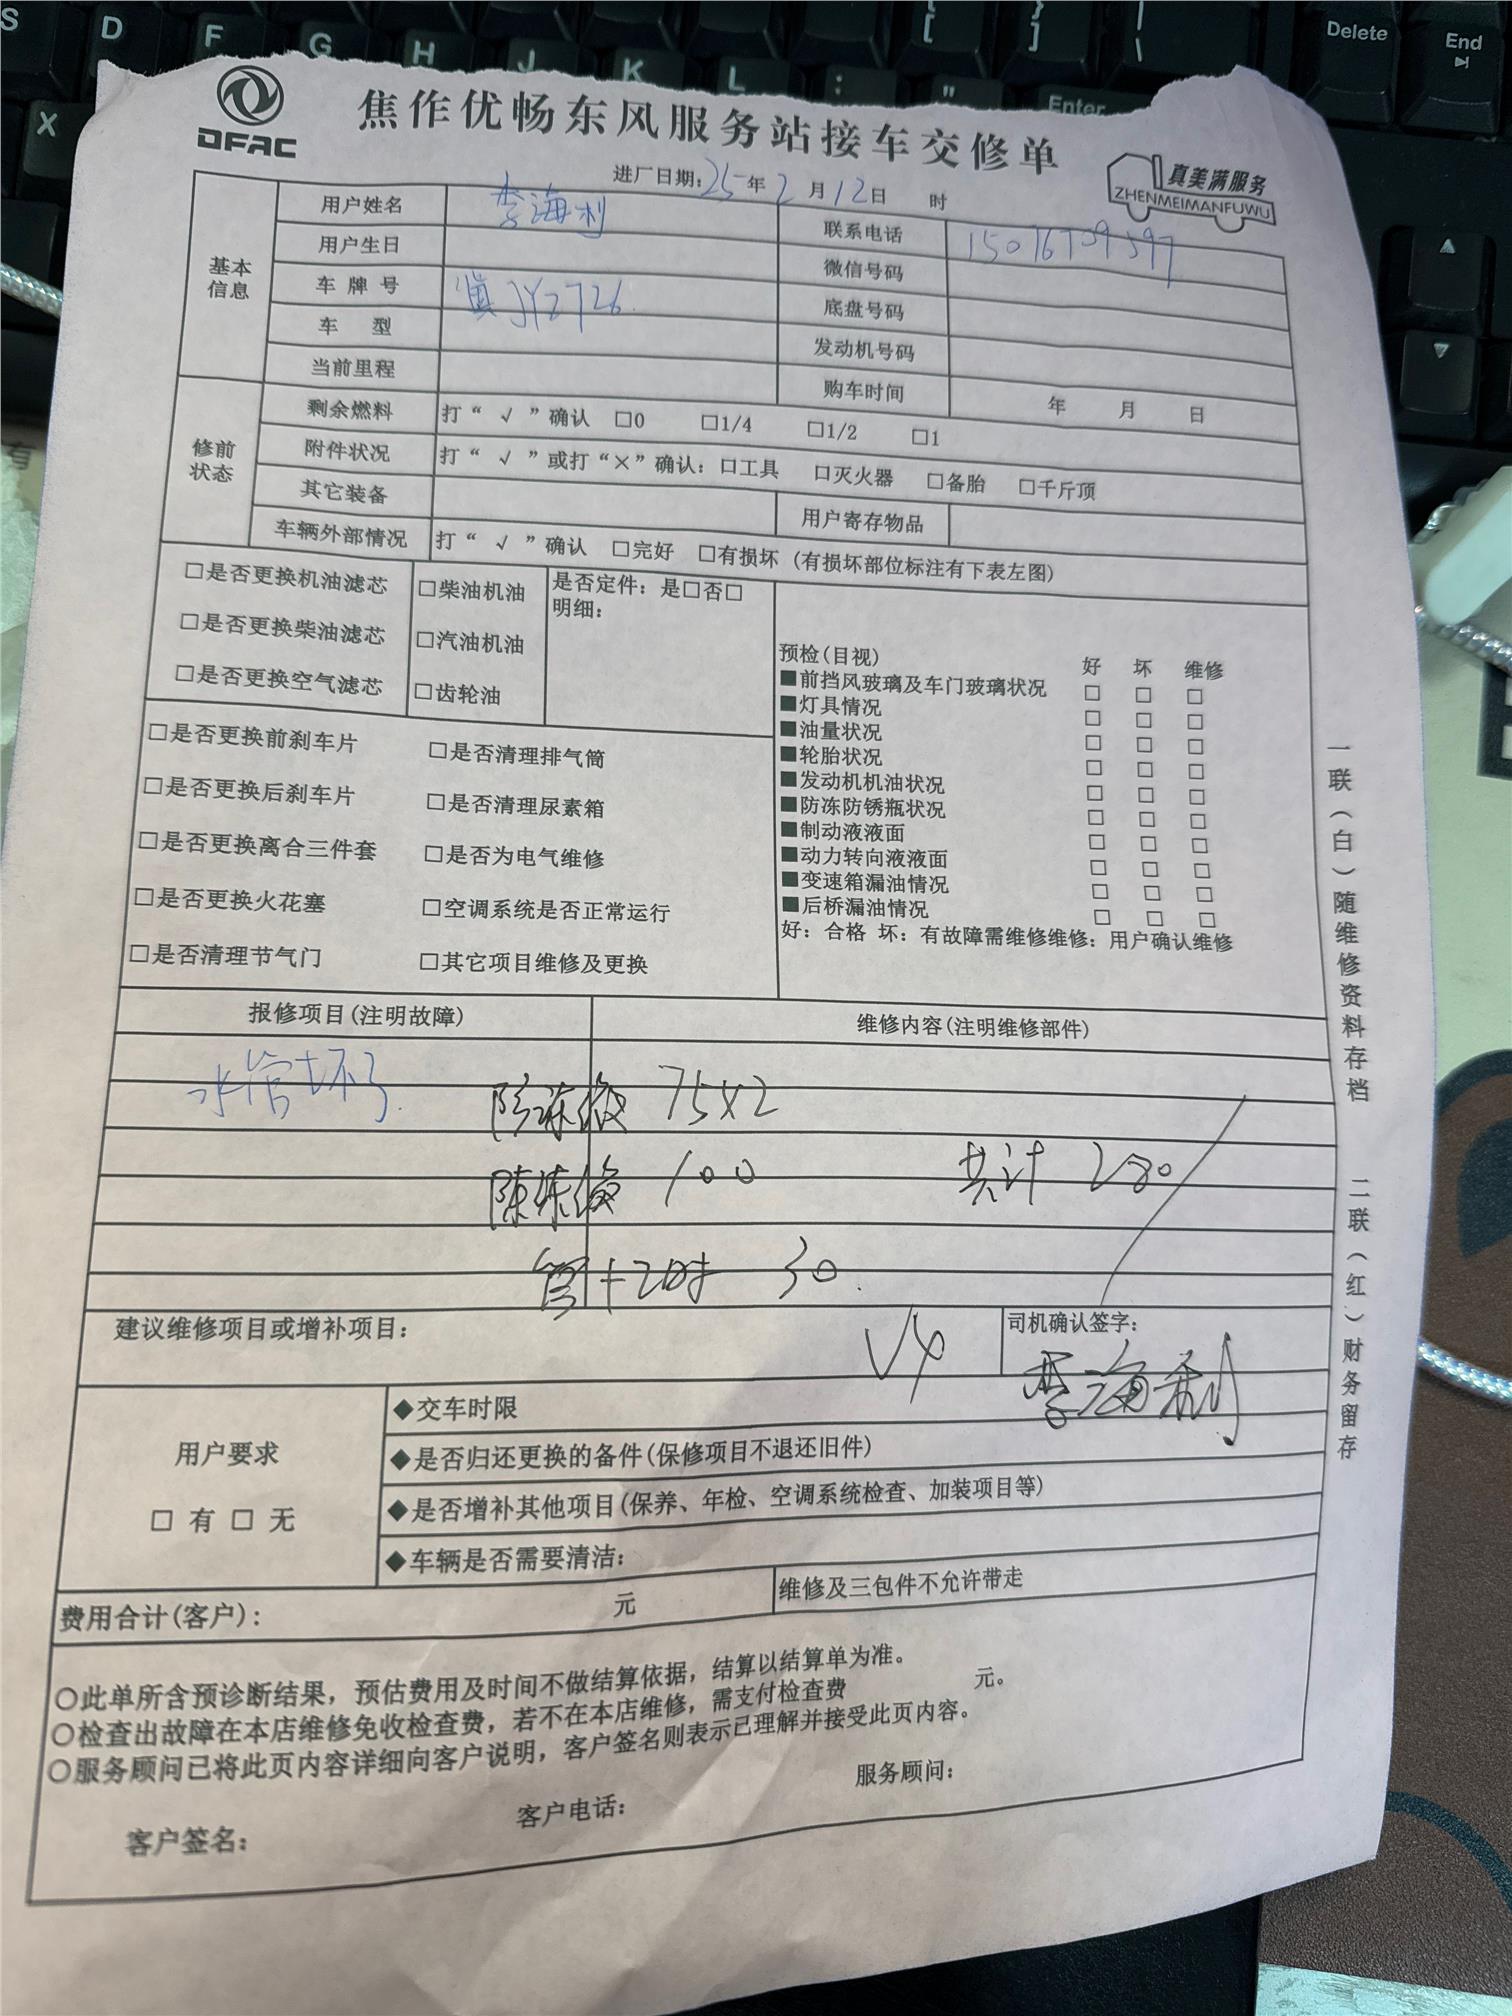 DFAC
焦作优畅东风服务站接车交修单
真美满服务
ZHENMEIMANFUWU
进厂日期:25年2月12日 时
基本信息
用户姓名 李海利 联系电话 15076709597
用户生日 微信号码
车牌号 冀JYZ726 底盘号码
车型 发动机号码
当前里程 购车时间 年 月 日
修前状态
剩余燃料 打“√”确认 □0 □1/4 □1/2 □1
附件状况 打“√”或打“×”确认: □工具 □灭火器 □备胎 □千斤顶
其它装备 用户寄存物品
车辆外部情况 打“√”确认 □完好 □有损坏 (有损坏部位标注有下表左图)
□是否更换机油滤芯 □柴油机油 是否定件: 是□否□
明细:
□是否更换柴油滤芯 □汽油机油
□是否更换空气滤芯 □齿轮油
□是否更换前刹车片 □是否清理排气筒
□是否更换后刹车片 □是否清理尿素箱
□是否更换离合三件套 □是否为电气维修
□是否更换火花塞 □空调系统是否正常运行
□是否清理节气门 □其它项目维修及更换
预检(目视) 好 坏 维修
■前挡风玻璃及车门玻璃状况 □ □ □
■灯具情况 □ □ □
■油量状况 □ □ □
■轮胎状况 □ □ □
■发动机机油状况 □ □ □
■防冻防锈瓶状况 □ □ □
■制动液液面 □ □ □
■动力转向液液面 □ □ □
■变速箱漏油情况 □ □ □
■后桥漏油情况 □ □ □
好: 合格 坏: 有故障需维修维修: 用户确认维修
报修项目(注明故障) 维修内容(注明维修部件)
水管坏了
防冻液 75×2
100
共计 280
管+工时 30
建议维修项目或增补项目:
司机确认签字:
李海利
用户要求
□ 有 □ 无
◆交车时限
◆是否归还更换的备件(保修项目不退还旧件)
◆是否增补其他项目(保养、年检、空调系统检查、加装项目等)
◆车辆是否需要清洁:
费用合计(客户): 元 维修及三包件不允许带走
○此单所含预诊断结果，预估费用及时间不做结算依据，结算以结算单为准。
○检查出故障在本店维修免收检查费，若不在本店维修，需支付检查费 元。
○服务顾问已将此页内容详细向客户说明，客户签名则表示已理解并接受此页内容。
客户签名: 客户电话: 服务顾问:
一联(白)随维修资料存档 二联(红)财务留存
S D F G H J K L : " Enter
X
[ ] | \
Delete End